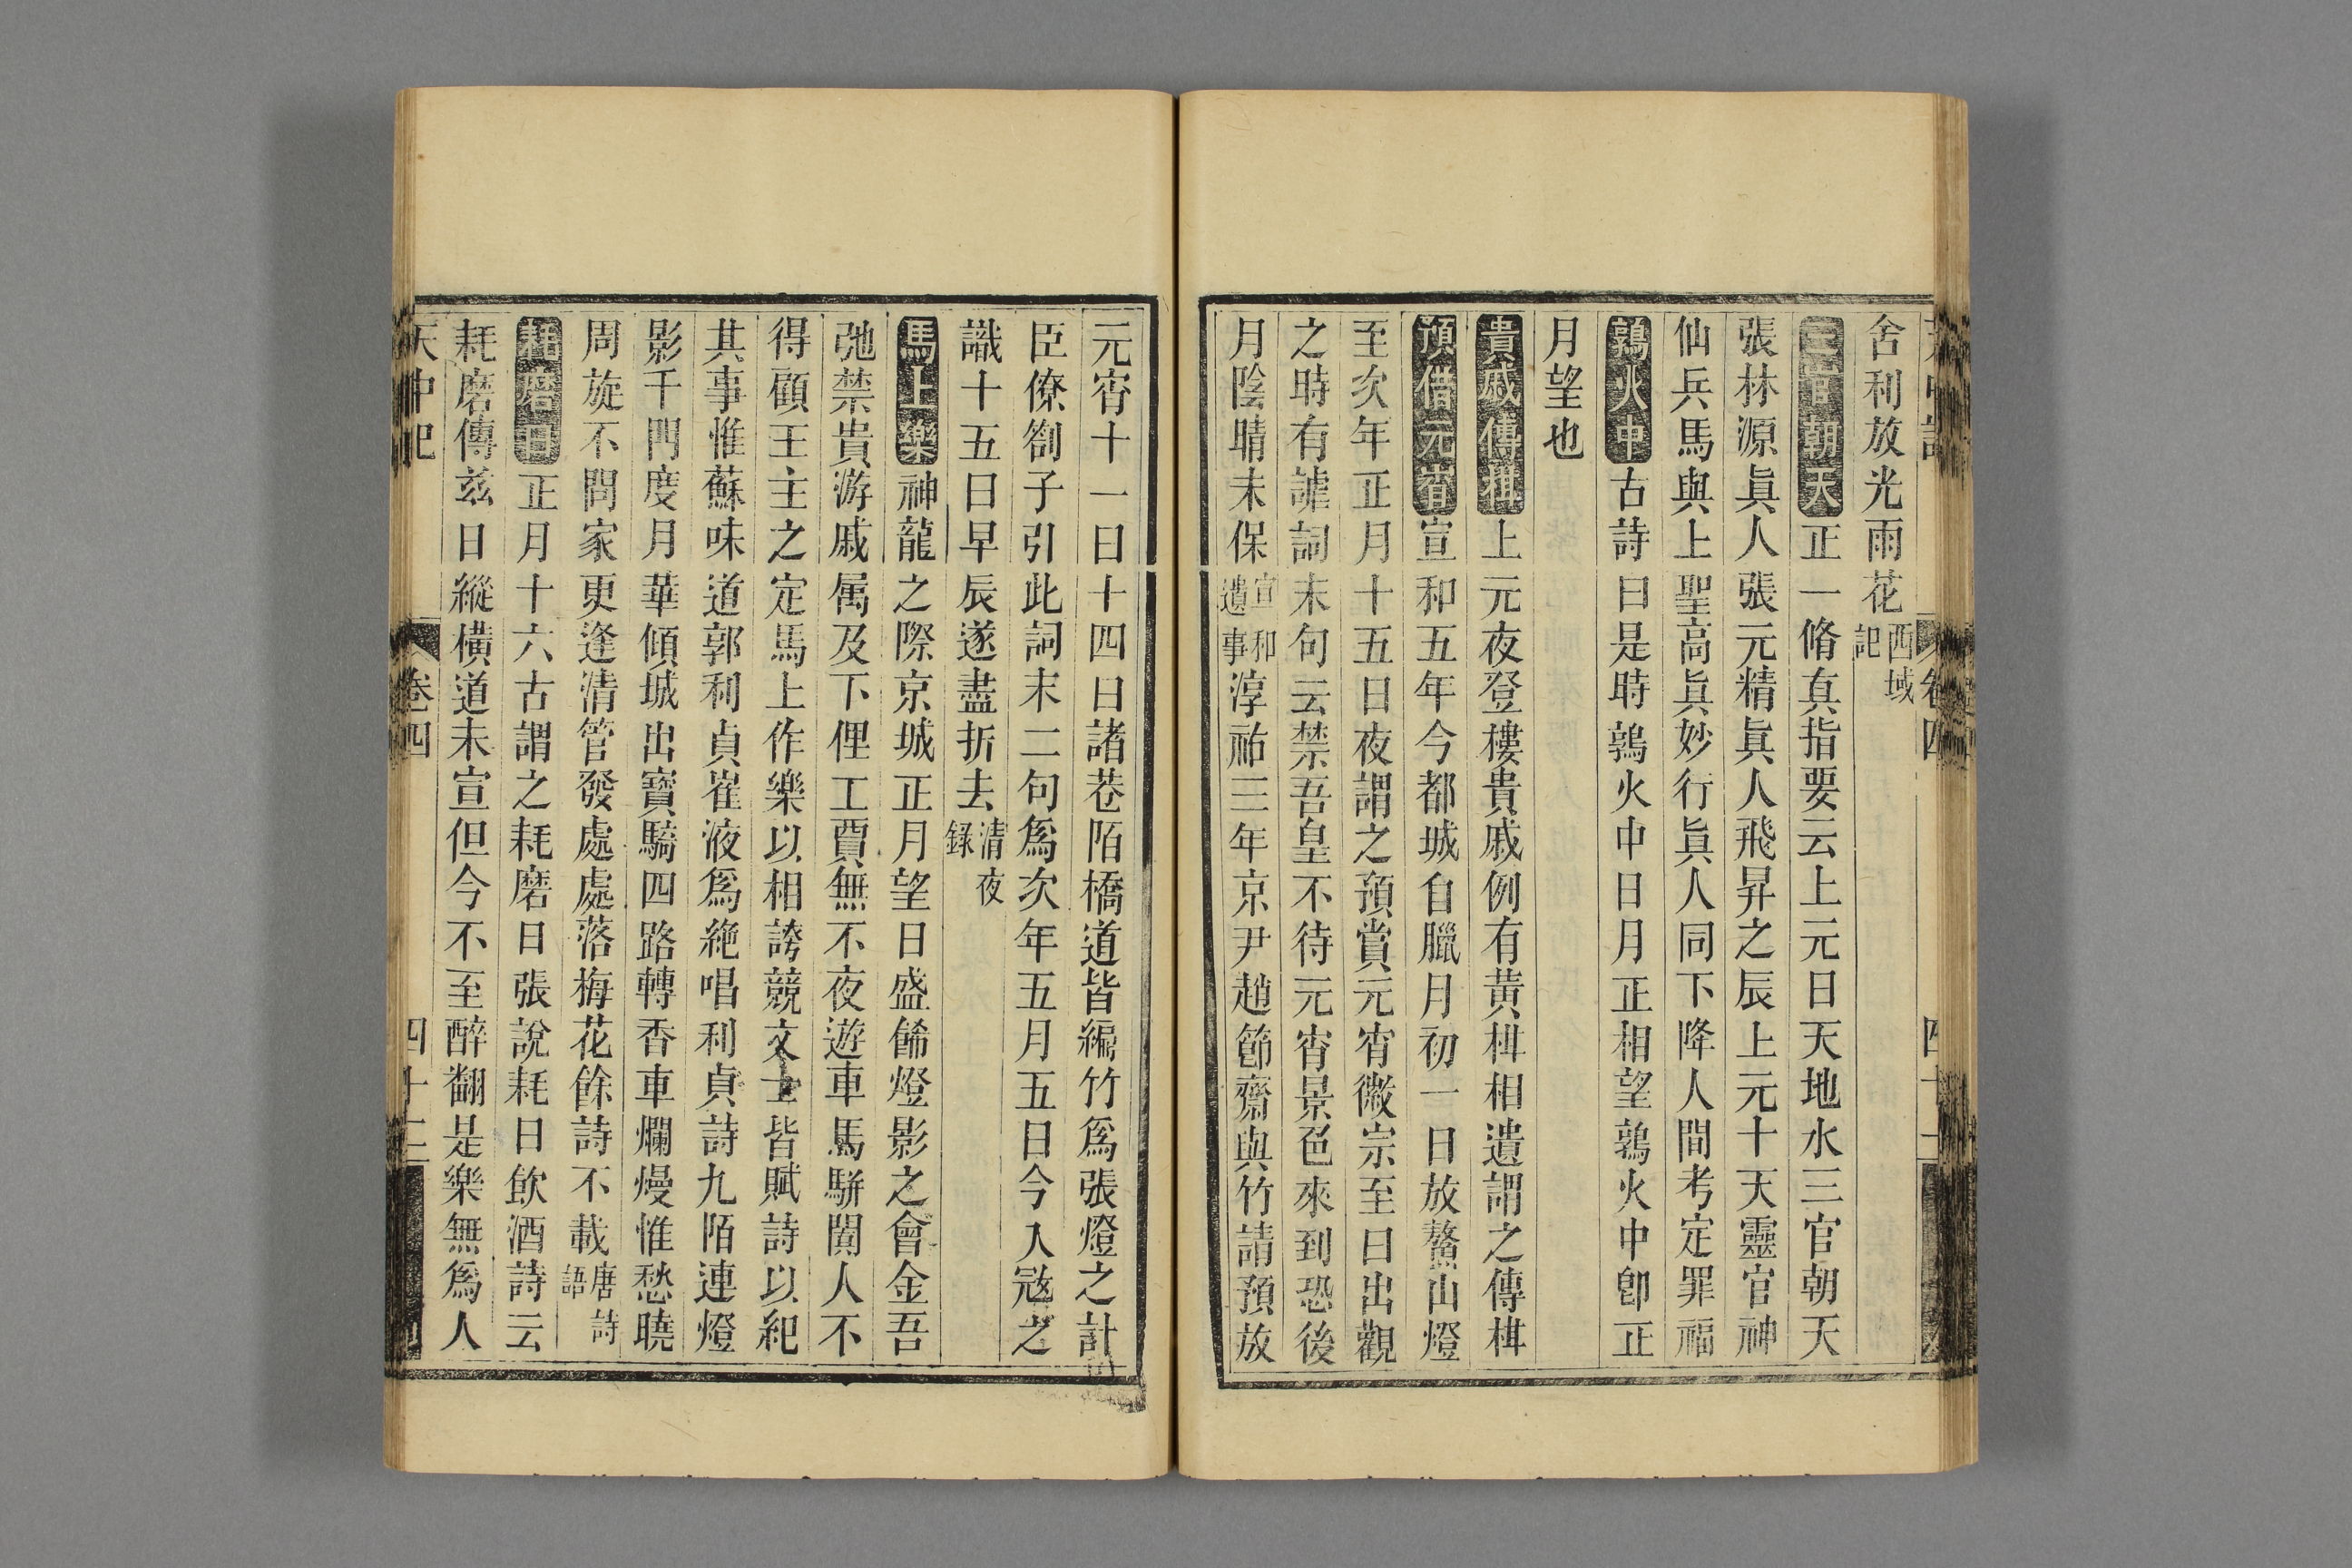 舍利放光雨花西域記
三官朝天正一脩真指要云上元日天地水三官朝天
張林源眞人張元精眞人飛昇之辰上元十天靈官神
仙兵馬與上聖高眞妙行眞人同下降人間考定罪福
鶉火中古詩曰是時鶉火中日月正相望鶉火中卽正
月望也
貴戚傳柑上元夜登樓貴戚例有黃柑相遺謂之傳柑
預借元宵宣和五年今都城自臘月初一日放鰲山燈
至次年正月十五日夜謂之預賞元宵徽宗至日出觀
之時有謔詞末句云禁吾皇不待元宵景色來到恐後
月陰晴未保宣和遺事淳祐三年京尹趙節齋與竹請預放
元宵十一日十四日諸巷陌橋道皆編竹爲張燈之計
臣僚劄子引此詞末二句爲次年五月五日今入寇之
讖十五日早辰遂盡折去清夜錄
馬上樂神龍之際京城正月望日盛餙燈影之會金吾
弛禁貴游戚属及下俚工賈無不夜遊車馬駢闐人不
得顧王主之定馬上作樂以相誇競文士皆賦詩以紀
其事惟蘇味道郭利貞崔液爲絶唱利貞詩九陌連燈
影千門度月華傾城出寶騎四路轉香車爛熳惟愁曉
周旋不問家更逢清管發處處落梅花餘詩不載唐詩語
耗磨日正月十六古謂之耗磨日張說耗日飲酒詩云
耗磨傳茲日縱橫道未宣但今不至醉翻是樂無爲人
天中記
卷四
四十三